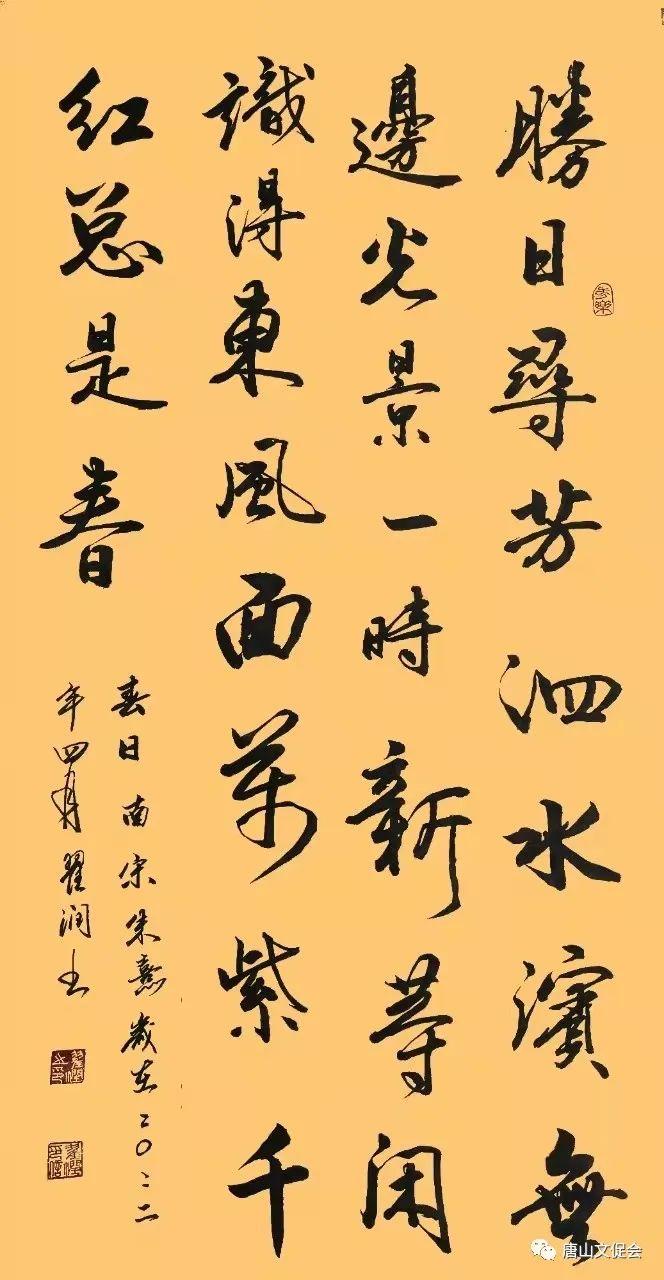 勝日尋芳泗水濱無
邊光景一時新等闲
識得東風面萬紫千
红总是春
春日 南宋朱熹 歲在二〇二二
年四月 翟润
唐山文促会